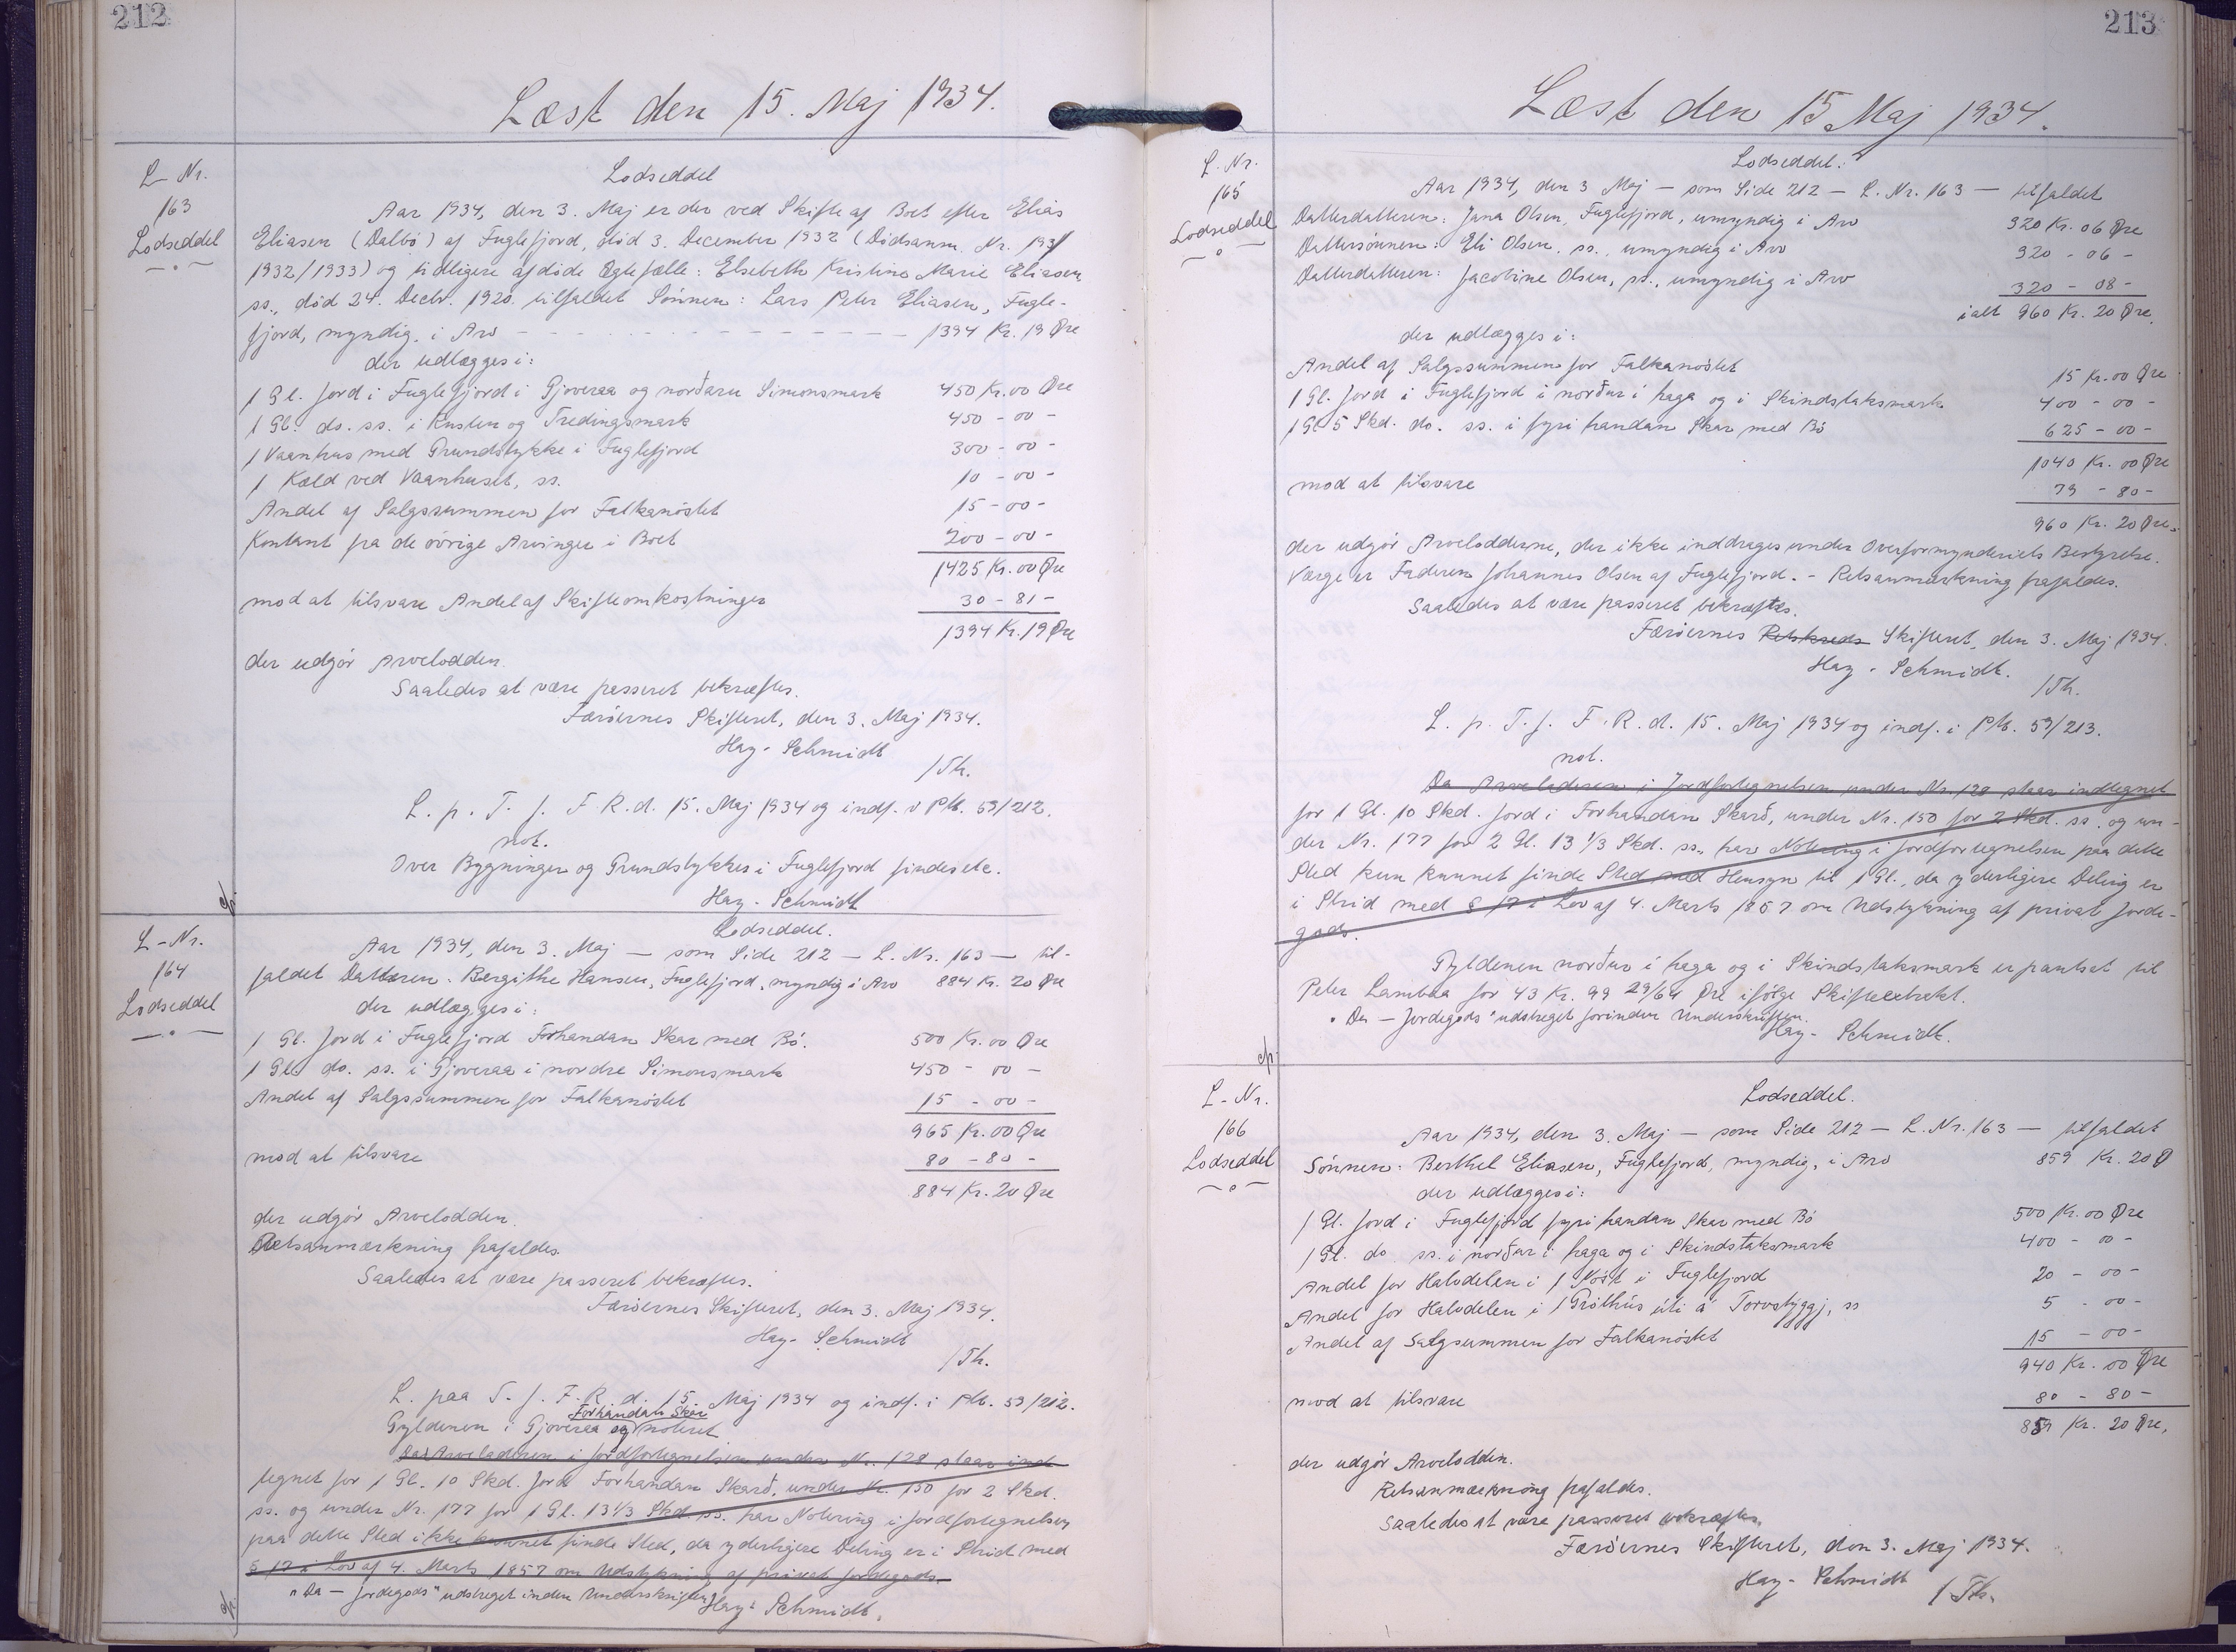 212
Læst den 15. Maj 1934.
L-Nr.
163
Lodseddel
Lodseddel
Aar 1934, den 3. Maj er der ved Skifte af Boet efter Elias
Eliasen (Dalbö) af Fuglefjord, död 3. December 1932 (Dödsanm. Nr. 193/
1932/1933) og tidligere afdöde Ægtefælle: Elsebeth Kristine Marie Eliasen
ss., död 24. Decbr. 1920. tilfaldet Sönnen: Lars Peter Eliasen, Fugle-
fjord, myndig, i Arv - - - - - - - - 1394 Kr. 19 Øre
der udlægges i:
1 Gl. Jord i Fuglefjord i Gjoveraa og norðaru Simonsmark 450 Kr. 00 Øre
1 Gl. do. ss. i Kusten og Tredingsmark 450 - 00 -
1 Vaanhus med Grundstykke i Fuglefjord 300 - 00 -
1 Kæld ved Vaanhuset, ss. 10 - 00 -
Andel af Salgssummen for Falkanöstet 15 - 00 -
Kontant fra de övrige Arvinger i Boet 200 - 00 -
1425 Kr. 00 Øre
mod at tilsvare Andel af Skifteomkostninger 30 - 81 -
1394 Kr. 19 Øre
der udgör Arvelodden.
Saaledes at være passeret bekræftes.
Færöernes Skifteret, den 3. Maj 1934.
Hay-Schmidt
/Th.
L. p. T. f. F. R. d. 15. Maj 1934 og indf. i Ptb. 59/212.
not.
Over Bygninger og Grundstykker i Fuglefjord findes etc.
Hay-Schmidt
L-Nr.
164
Lodseddel
Lodseddel.
Aar 1934, den 3. Maj — som Side 212 — L. Nr. 163 — til-
faldet Datteren: Bergithe Hansen, Fuglefjord, myndig i Arv 884 Kr. 20 Øre
der udlægges i:
1 Gl. Jord i Fuglefjord Forhandan Skar med Bö. 500 Kr. 00 Øre
1 Gl. do. ss. i Gjoveraa i nordre Simonsmark 450 - 00 -
Andel af Salgssummen for Falkanöstet 15 - 00 -
965 Kr. 00 Øre
mod at tilsvare 80 - 80 -
884 Kr. 20 Øre
der udgör Arvelodden.
Retsanmærkning frafaldes.
Saaledes at være passeret bekræftes.
Færöernes Skifteret, den 3. Maj 1934.
Hay-Schmidt
/Th.
L. paa T. f. F. R. d. 15. Maj 1934 og indf. i Ptb. 59/212.
Forhandan Skar
Gyldenen i Gjoveraa og noteret
Da Arveladeren i Jordfortegnelsen under Nr. 128 staar ind-
tegnet for 1 Gl. 10 Skd. Jord Forhandan Skarð, under Nr. 150 for 2 Skd.
ss. og under Nr. 177 for 1 Gl. 13 1/3 Skd. ss. har Notering i Jordfortegnelsen
paa dette Sted ikke kunnet finde Sted, da yderligere Deling er i Strid med
§ 17 i Lov af 4. Marts 1857 om Udstykning af privat Jordegods.
"Da — Jordegods" udstreget inden Underskriften. Hay-Schmidt.
213
Læst den 15 Maj 1934.
L. Nr.
165
Lodseddel
Lodseddel.
Aar 1934, den 3 Maj — som Side 212 — L. Nr. 163 — tilfaldet
Datterdatteren: Jana Olsen, Fuglefjord, umyndig i Arv 320 Kr. 06 Øre
Dattersönnen: Eli Olsen, ss., umyndig i Arv 320 - 06 -
Datterdatteren: Jacobine Olsen, ss., umyndig i Arv 320 - 08 -
ialt 960 Kr. 20 Øre.
der udlægges i:
Andel af Salgssummen for Falkanöstet 15 Kr. 00 Øre
1 Gl. Jord i Fuglefjord i norður i haga og i Skindstaksmark 400 - 00 -
1 Gl. 5 Skd. do. ss. i fyri handan Skar med Bö 625 - 00 -
1040 Kr. 00 Øre
mod at tilsvare 79 - 80 -
960 Kr. 20 Øre.
der udgör Arvelodderne, der ikke inddrages under Overformynderiets Bestyrelse.
Værge er Faderen Johannes Olsen af Fuglefjord. - Retsanmærkning frafaldes.
Saaledes at være passeret bekræftes.
Færöernes Retskreds Skifteret, den 3. Maj 1934.
Hay-Schmidt.
/Th.
L. p. T. f. F. R. d. 15. Maj 1934 og indf. i Ptb. 59/213.
not.
Da Arveladeren i Jordfortegnelsen under Nr. 128 staar indtegnet
for 1 Gl. 10 Skd. Jord i Forhandan Skarð, under Nr. 150 for 2 Skd. ss. og un-
der Nr. 177 for 2 Gl. 13 1/3 Skd. ss., har Notering i Jordfortegnelsen paa dette
Sted kun kunnet finde Sted med Hensyn til 1 Gl., da yderligere Deling er
i Strid med § 17 i Lov af 4. Marts 1857 om Udstykning af privat Jorde-
gods.
Gyldenen norður i haga og i Skindstaksmark er pantsat til
Peter Lambaa for 43 Kr. 99 29/64 Øre ifölge Skifteextrakt.
"Da — Jordegods" udstreget forinden Underskriften.
Hay-Schmidt.
L-Nr.
166
Lodseddel
Lodseddel.
Aar 1934, den 3. Maj — som Side 212 — L. Nr. 163 — tilfaldet
Sönnen: Berthel Eliasen, Fuglefjord, myndig, i Arv 859 Kr. 20 Ø
der udlægges i:
1 Gl. Jord i Fuglefjord fyri handan Skar med Bö 500 Kr. 00 Øre
1 Gl. do ss. i norður i haga og i Skindstaksmark 400 - 00 -
Andel for Halvdelen i 1 Nöst i Fuglefjord 20 - 00 -
Andel for Halvdelen i 1 Gróthús úti á Torvstyggj, ss 5 - 00 -
Andel af Salgsummen for Falkanöstet 15 - 00 -
940 Kr. 00 Øre
mod at tilsvare 80 - 80 -
859 Kr. 20 Øre.
der udgör Arvelodden.
Retsanmærkning frafaldes.
Saaledes at være passeret bekræftes,
Færöernes Skifteret, den 3. Maj 1934.
Hay-Schmidt
/Th.